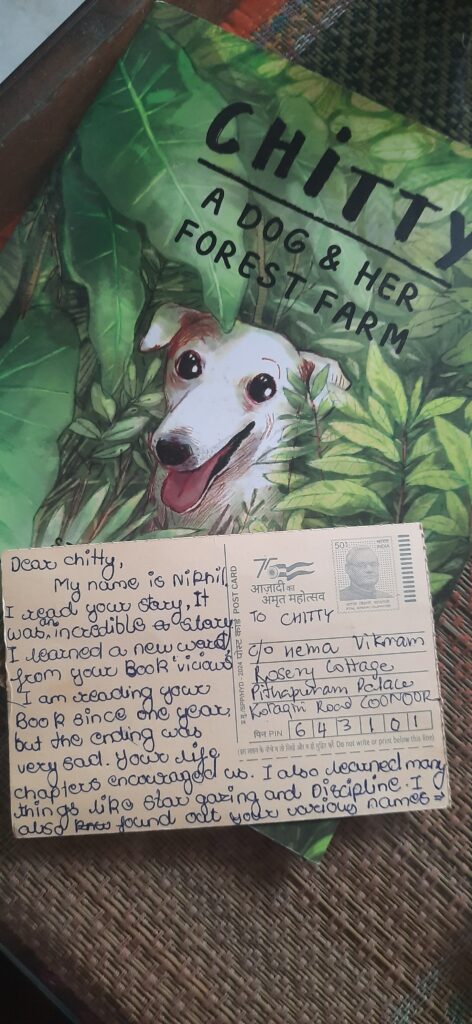 CHiTTY
A DOG & HER
FOREST FARM
Dear chitty,
My name is Nikhil.
I read your story, It
was an incredible story
I learned a new word
from your Book 'vicious'
I am reading your
Book since one year
but the ending was
very sad. Your life
chapters encouraged us. I also learned many
things like star gazing and Discipline. I
also found out your various names
पोस्ट कार्ड POST CARD
75
आज़ादी का
अमृत महोत्सव
50
भारत INDIA
TO CHITTY
c/o Hema Vikram
Rosery Cottage
Pithapuram Palace
Kotagiri Road COONOOR
पिन PIN 6 4 3 1 0 1
Do not write or print below this line